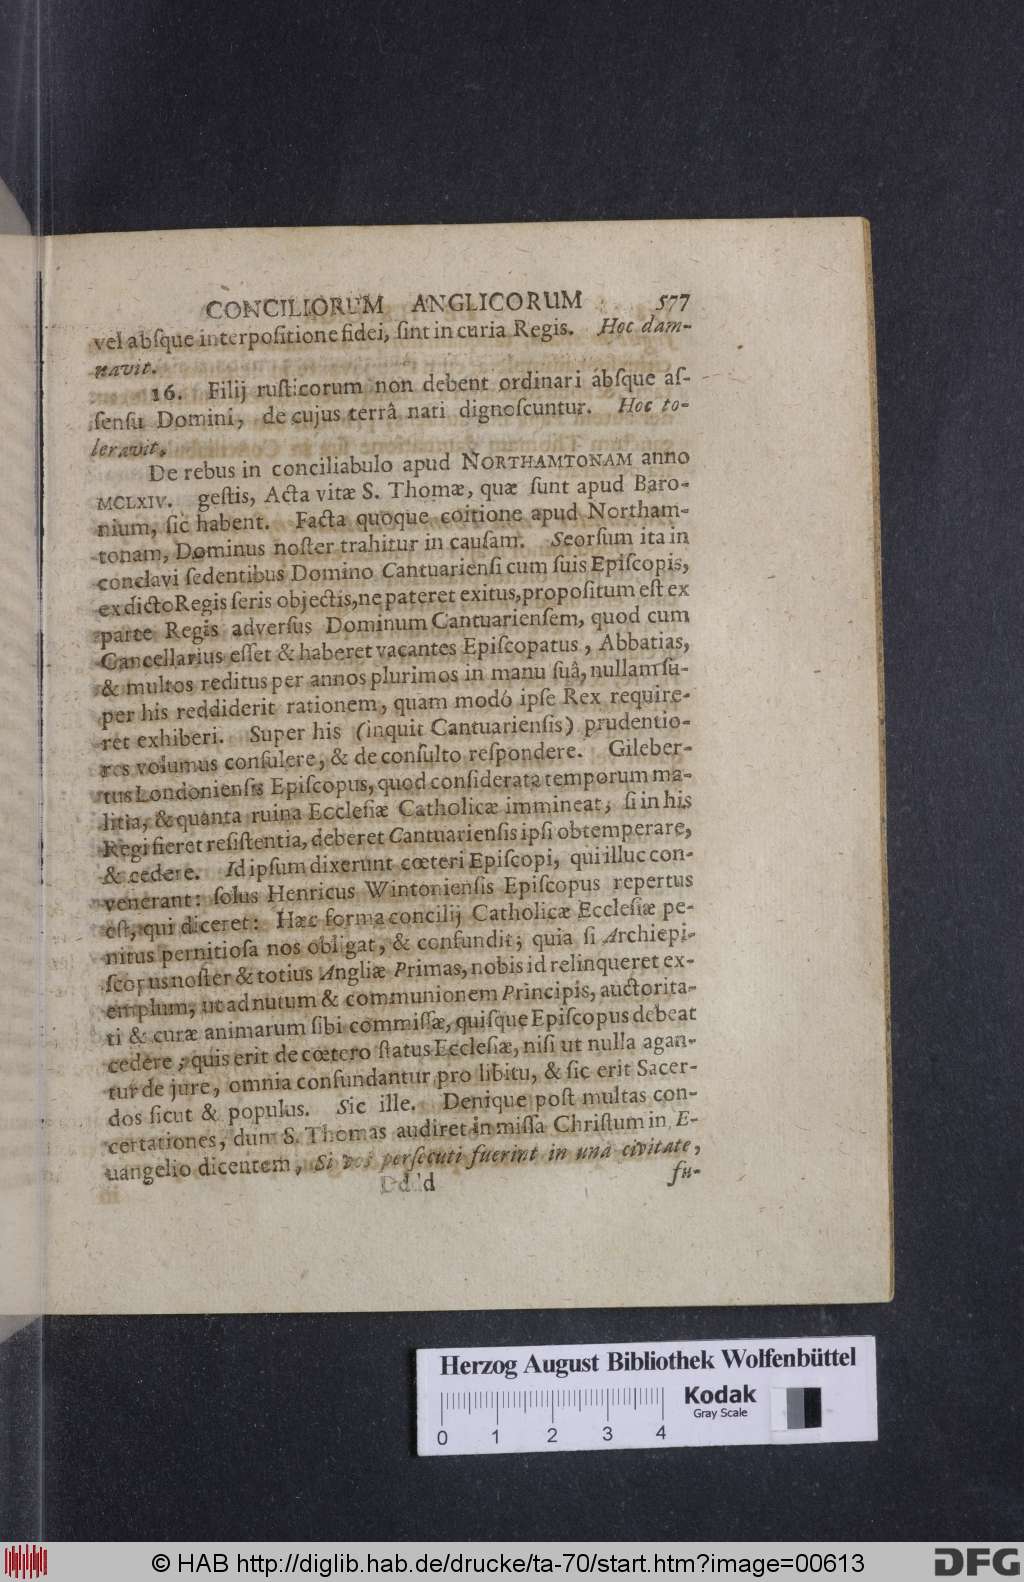 CONCILIORUM ANGLICORUM 577
vel abſque interpoſitione fidei, ſint in curia Regis. Hoc dam-
navit.
16. Filij ruſticorum non debent ordinari abſque aſ-
ſenſu Domini, de cujus terrâ nati dignoſcuntur. Hoc to-
leravit.
De rebus in conciliabulo apud NORTHAMTONAM anno
MCLXIV. geſtis, Acta vitæ S. Thomæ, quæ ſunt apud Baro-
nium, ſic habent. Facta quoque coitione apud Northam-
tonam, Dominus noſter trahitur in cauſam. Seorſum ita in
conclavi ſedentibus Domino Cantuarienſi cum ſuis Epiſcopis,
ex dicto Regis ſeris objectis, ne pateret exitus, propoſitum eſt ex
parte Regis adverſus Dominum Cantuarienſem, quod cum
Cancellarius eſſet & haberet vacantes Epiſcopatus, Abbatias,
& multos reditus per annos plurimos in manu ſuâ, nullam ſu-
per his reddiderit rationem, quam modó ipſe Rex require-
ret exhiberi. Super his (inquit Cantuarienſis) prudentio-
res volumus conſulere, & de conſulto reſpondere. Gileber-
tus Londonienſis Epiſcopus, quod conſiderata temporum ma-
litia, & quanta ruina Eccleſiæ Catholicæ immineat; ſi in his
Regi fieret reſiſtentia, deberet Cantuarienſis ipſi obtemperare,
& cedere. Id ipſum dixerunt cœteri Epiſcopi, qui illuc con-
venerant: ſolus Henricus Wintonienſis Epiſcopus repertus
eſt, qui diceret: Hæc forma concilij Catholicæ Eccleſiæ pe-
nitus pernitioſa nos obligat, & confundit; quia ſi Archiepi-
ſcopus noſter & totius Angliæ Primas, nobis id relinqueret ex-
emplum, ut ad nutum & communionem Principis, auctorita-
ti & curæ animarum ſibi commiſſæ, quiſque Epiſcopus debeat
cedere; quis erit de cœtero ſtatus Eccleſiæ, niſi ut nulla agan-
tur de jure, omnia confundantur pro libitu, & ſic erit Sacer-
dos ſicut & populus. Sic ille. Denique poſt multas con-
certationes, dum S. Thomas audiret in miſſa Chriſtum in E-
uangelio dicentem, Si vos perſecuti fuerint in unâ civitate,
Dddd fu-
Herzog August Bibliothek Wolfenbüttel
Kodak
Gray Scale
0 1 2 3 4
© HAB http://diglib.hab.de/drucke/ta-70/start.htm?image=00613
DFG